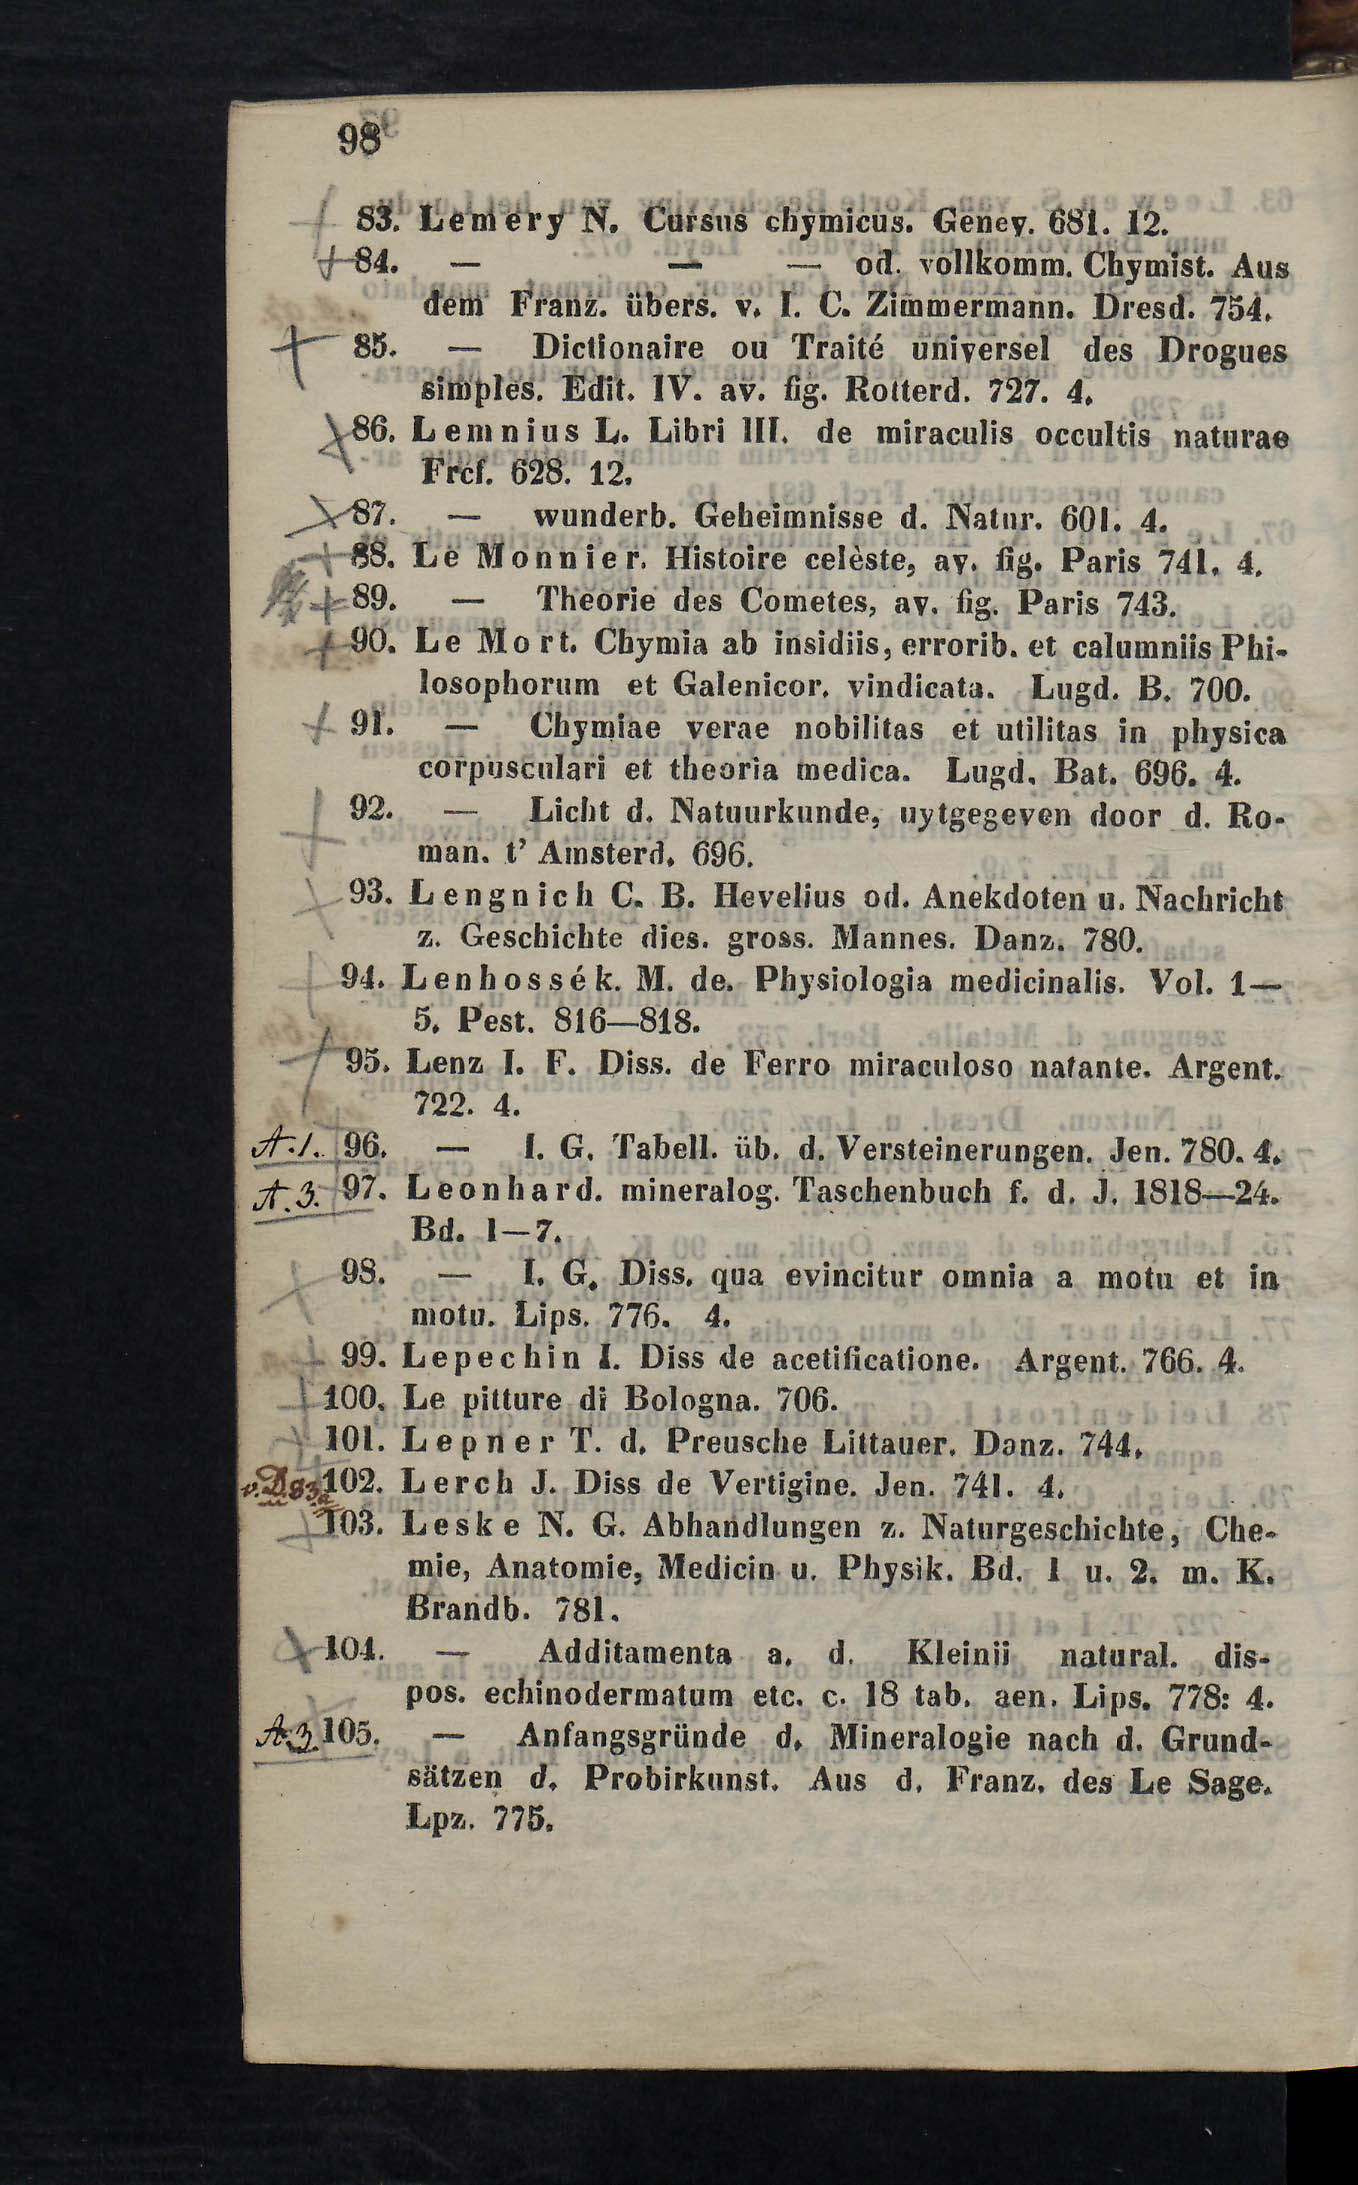 98
83. Lemery N. Cursus chymicus. Genev. 681. 12.
84. — — — od. vollkomm. Chymist. Aus
dem Franz. übers. v. I. C. Zimmermann. Dresd. 754.
85. — Dictionaire ou Traité universel des Drogues
simples. Edit. IV. av. fig. Rotterd. 727. 4.
86. Lemnius L. Libri III. de miraculis occultis naturae
Frcf. 628. 12.
87. — wunderb. Geheimnisse d. Natur. 601. 4.
88. Le Monnier. Histoire celèste, av. fig. Paris 741. 4.
89. — Theorie des Cometes, av. fig. Paris 743.
90. Le Mort. Chymia ab insidiis, errorib. et calumniis Phi-
losophorum et Galenicor. vindicata. Lugd. B. 700.
91. — Chymiae verae nobilitas et utilitas in physica
corpusculari et theoria medica. Lugd. Bat. 696. 4.
92. — Licht d. Natuurkunde, uytgegeven door d. Ro-
man. t' Amsterd. 696.
93. Lengnich C. B. Hevelius od. Anekdoten u. Nachricht
z. Geschichte dies. gross. Mannes. Danz. 780.
94. Lenhossék. M. de. Physiologia medicinalis. Vol. 1—
5. Pest. 816—818.
95. Lenz I. F. Diss. de Ferro miraculoso natante. Argent.
722. 4.
A.1. 96. — I. G. Tabell. üb. d. Versteinerungen. Jen. 780. 4.
A.3. 97. Leonhard. mineralog. Taschenbuch f. d. J. 1818—24.
Bd. 1—7.
98. — I. G. Diss. qua evincitur omnia a motu et in
motu. Lips. 776. 4.
99. Lepechin I. Diss de acetificatione. Argent. 766. 4.
100. Le pitture di Bologna. 706.
101. Lepner T. d. Preusche Littauer. Danz. 744.
v. D. 83 102. Lerch J. Diss de Vertigine. Jen. 741. 4.
103. Leske N. G. Abhandlungen z. Naturgeschichte, Che-
mie, Anatomie, Medicin u. Physik. Bd. 1 u. 2. m. K.
Brandb. 781.
104. — Additamenta a. d. Kleinii natural. dis-
pos. echinodermatum etc. c. 18 tab. aen. Lips. 778: 4.
A.3. 105. — Anfangsgründe d. Mineralogie nach d. Grund-
sätzen d. Probirkunst. Aus d. Franz. des Le Sage.
Lpz. 775.